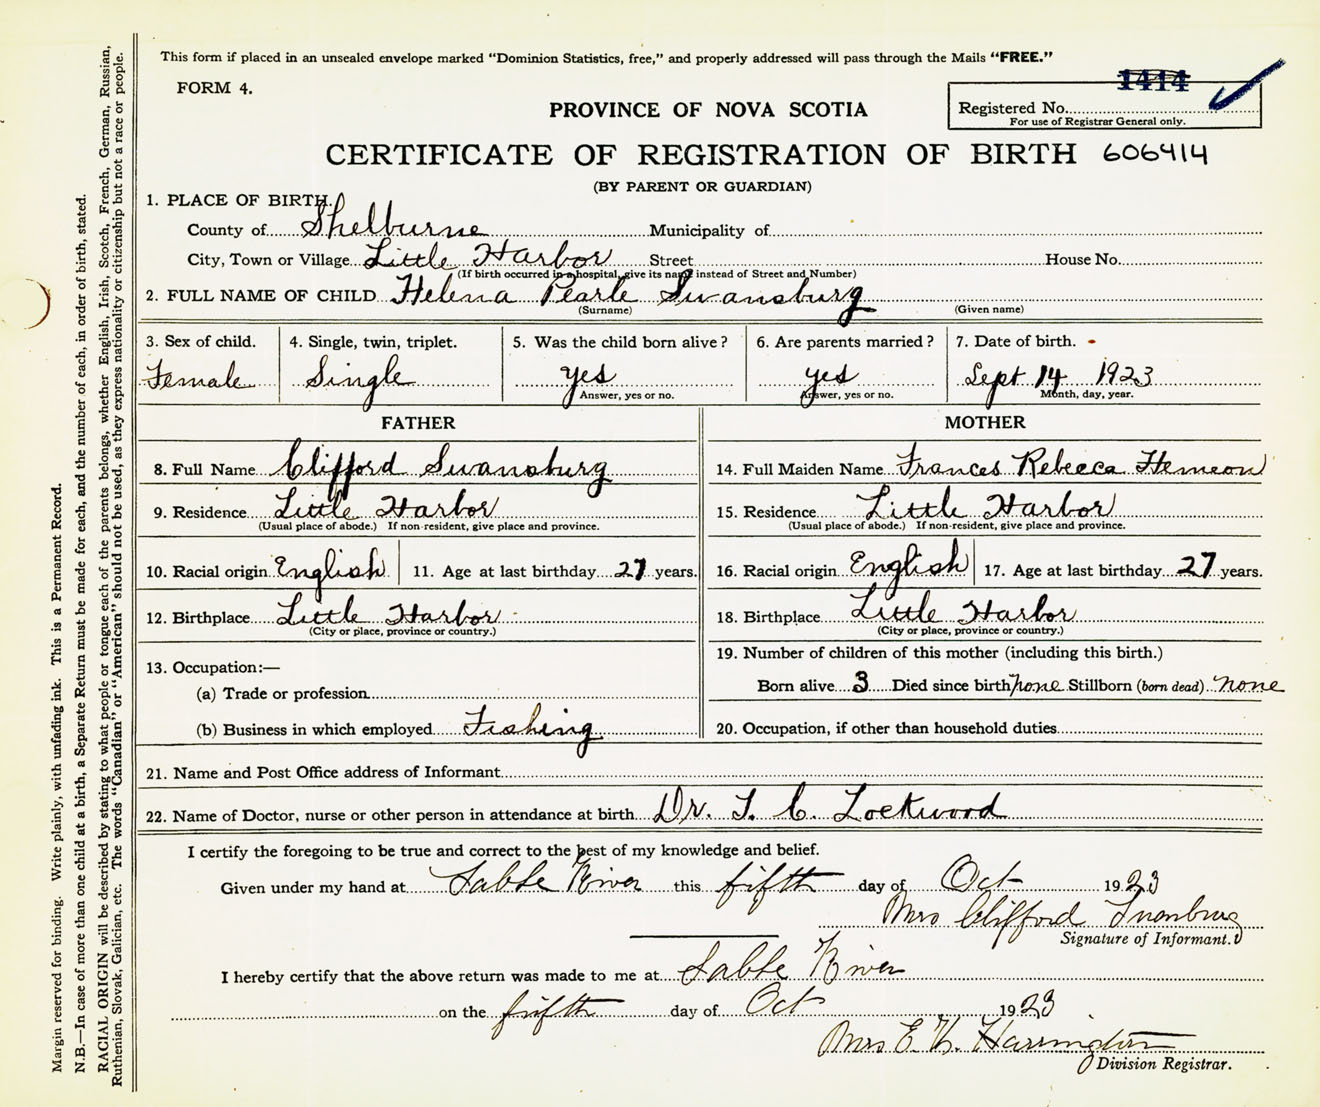 This form if placed in an unsealed envelope marked “Dominion Statistics, free,” and properly addressed will pass through the Mails “FREE.”
FORM 4.
1414
PROVINCE OF NOVA SCOTIA
Registered No.
For use of Registrar General only.
CERTIFICATE OF REGISTRATION OF BIRTH 606414
(BY PARENT OR GUARDIAN)
1. PLACE OF BIRTH.
County of Shelburne Municipality of
City, Town or Village Little Harbor Street House No.
(If birth occurred in a hospital, give its name instead of Street and Number)
2. FULL NAME OF CHILD Helena Pearle Swansburg
(Surname) (Given name)
3. Sex of child. 4. Single, twin, triplet. 5. Was the child born alive? 6. Are parents married? 7. Date of birth.
Female Single yes yes Sept 14 1923
Answer, yes or no. Answer, yes or no. Month, day, year.
FATHER MOTHER
8. Full Name Clifford Swansburg 14. Full Maiden Name Frances Rebecca Hemeon
9. Residence Little Harbor 15. Residence Little Harbor
(Usual place of abode.) If non-resident, give place and province. (Usual place of abode.) If non-resident, give place and province.
10. Racial origin English 11. Age at last birthday 27 years. 16. Racial origin English 17. Age at last birthday 27 years.
12. Birthplace Little Harbor 18. Birthplace Little Harbor
(City or place, province or country.) (City or place, province or country.)
13. Occupation:— 19. Number of children of this mother (including this birth.)
(a) Trade or profession Born alive 3 Died since birth none Stillborn (born dead) none
(b) Business in which employed Fishing 20. Occupation, if other than household duties
21. Name and Post Office address of Informant
22. Name of Doctor, nurse or other person in attendance at birth Dr. T. C. Lockwood
I certify the foregoing to be true and correct to the best of my knowledge and belief.
Given under my hand at Sable River this fifth day of Oct 1923
Mrs Clifford Swansburg
Signature of Informant.
I hereby certify that the above return was made to me at Sable River
on the fifth day of Oct 1923
Mrs E. Harrington
Division Registrar.
Margin reserved for binding. Write plainly, with unfading ink. This is a Permanent Record.
N.B.—In case of more than one child at a birth, a Separate Return must be made for each, and the number of each, in order of birth, stated.
RACIAL ORIGIN will be described by stating to what people or tongue each of the parents belongs, whether English, Irish, Scotch, French, German, Russian,
Ruthenian, Slovak, Galician, etc. The words “Canadian” or “American” should not be used, as they express nationality or citizenship but not a race or people.